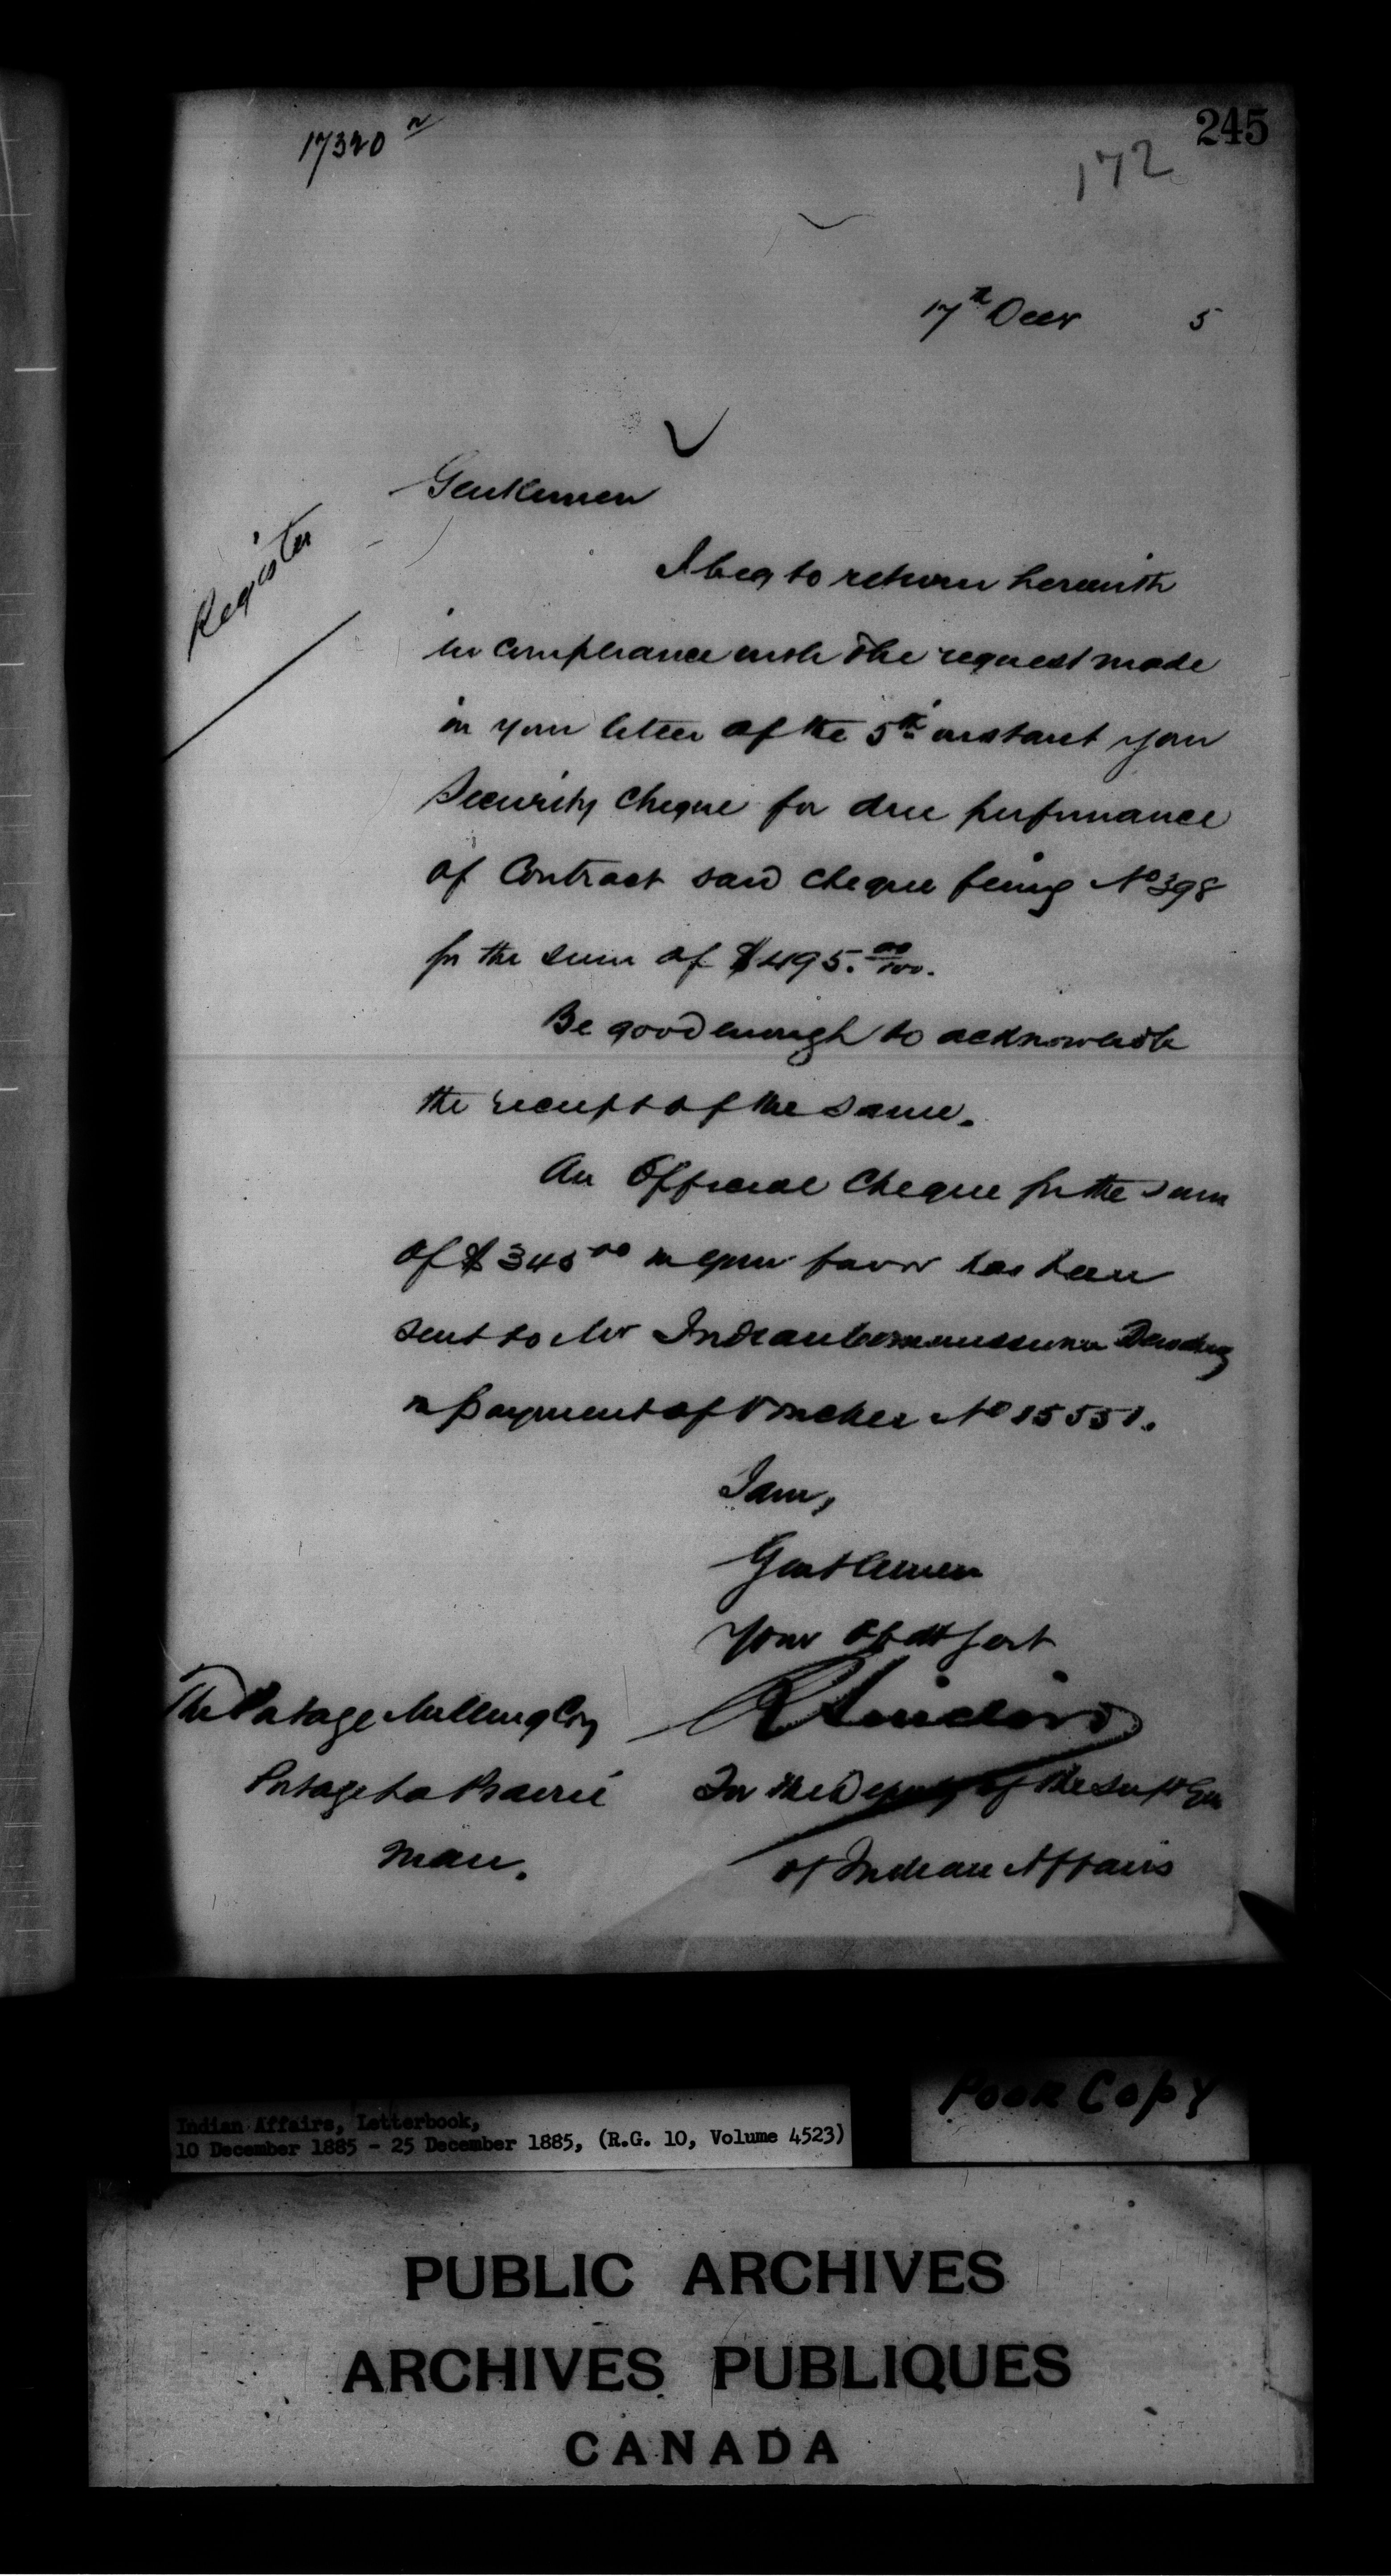 245
17320 n
172
17th Decr 5
Gentlemen
Register
I beg to return herewith
in compliance with the request made
in your letter of the 5th instant your
Security Cheque for due performance
of Contract said cheque being No 398
for the sum of $495.00/100.
Be good enough to acknowledge
the receipt of the same.
An Official Cheque for the sum
of $ 345 00 in your favor has been
sent to Mr Indian Commissioner Dewdney
in payment of Voucher No 15551.
I am,
Gentlemen
Your Obdt Servt
R Sinclair
The Portage Milling Coy
Portage La Prairie
Man.
For the Deputy of the Supt Gen
of Indian Affairs
Poor Copy
Indian Affairs, Letterbook,
10 December 1885 - 25 December 1885, (R.G. 10, Volume 4523)
PUBLIC ARCHIVES
ARCHIVES PUBLIQUES
CANADA